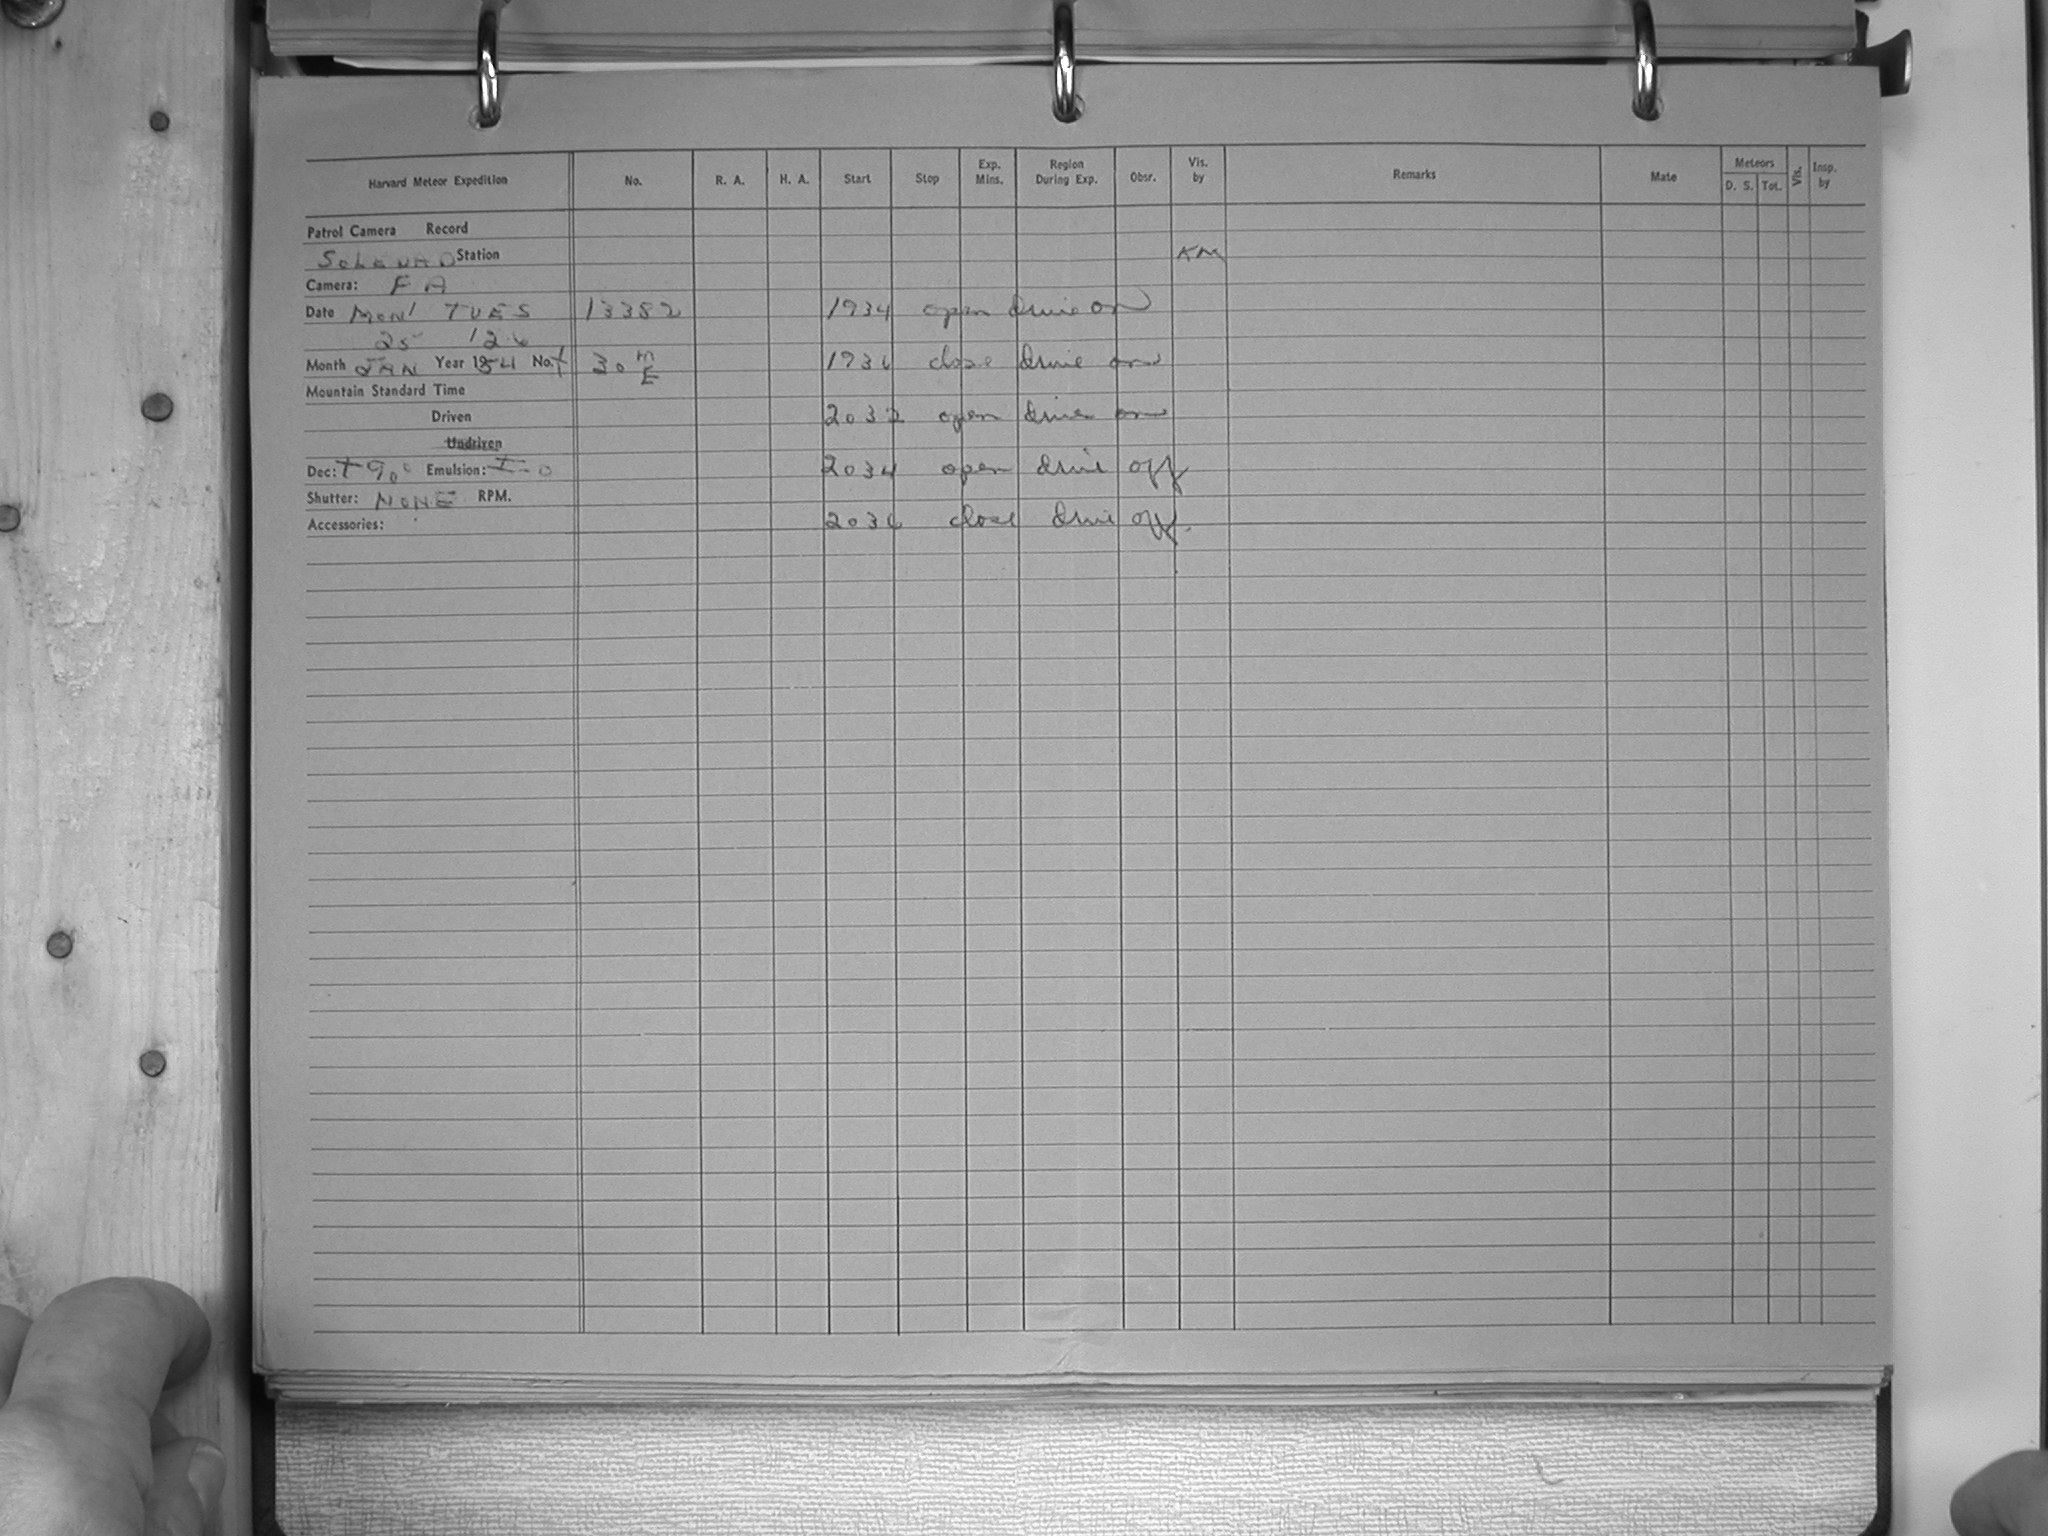 Harvard Meteor Expedition No. R. A. H. A. Start Stop Exp. Mins. Region During Exp. Obsr. Vis. by Remarks Mate Meteors D. S. Tot. Vis. Insp. by
Patrol Camera Record
Soledad Station KM
Camera: FA
Date MON TUES 13382 1934 open drive on
25 26
Month JAN Year 1954 No. 30 M E 1936 close drive on
Mountain Standard Time
Driven 2032 open drive on
Undriven
Dec: +90° Emulsion: I-O 2034 open drive off
Shutter: NONE RPM.
Accessories: 2036 close drive off.